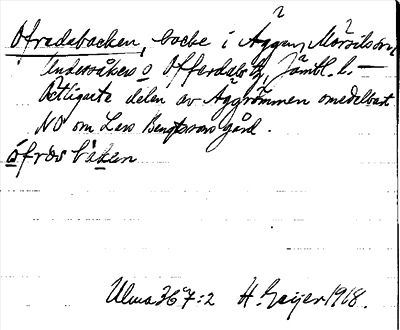 ?
Ofredsbacken, backe i Äggen, Mörsils sn,
Undersåkers o Offerdals tg, Jämtl. l. —
Östligaste delen av Äggrömmen omedelbart
NO om Lars Bengtssons gård.
ófrəs bàkan
Ulma 367:2 H. Geijer 1918.